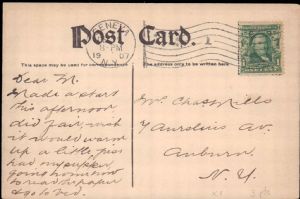 Post Card.
GENEVA
8-PM
1907
N.Y.
THIS SPACE MAY BE USED FOR MESSAGE
THE ADDRESS ONLY TO BE
Dear M.
Made a start
this afternoon
did fair, wish
it would warm
up a little
had my supper
going home now
to read the paper
& go to bed.
Mr. Chas. Mills
7 Aurelius Av.
Auburn
N. Y.